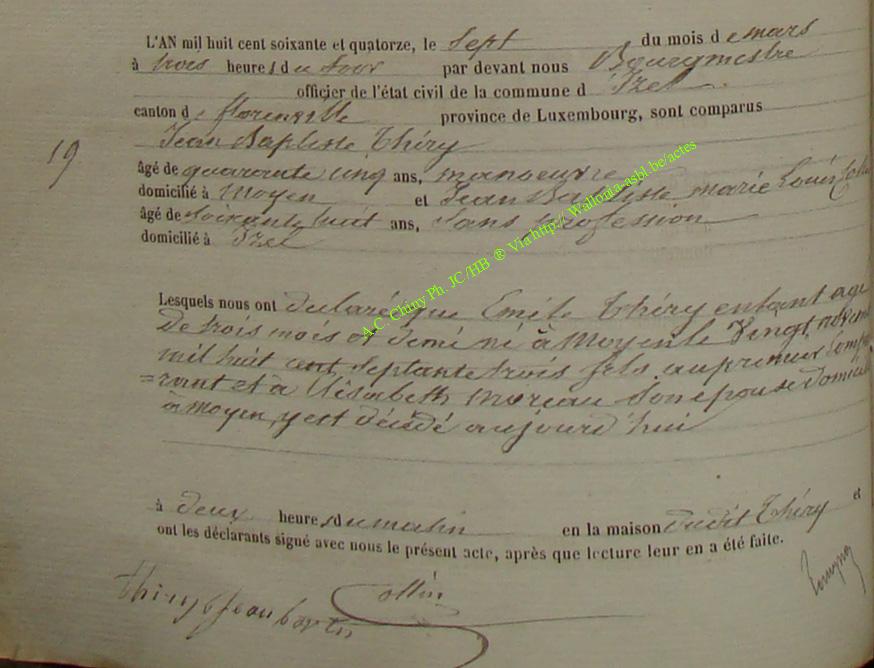 L'AN mil huit cent soixante et quatorze, le Sept du mois de mars
à trois heures du Soir par devant nous Bourgmestre
officier de l'état civil de la commune d' Izel
canton de florenville province de Luxembourg, sont comparus
Jean Baptiste Théry
19
âgé de quarante cinq ans, manoeuvre
domicilié à Moyen et Jean Baptiste marie Louis
âgé de soixante huit ans, Sans profession
domicilié à Izel
Lesquels nous ont déclaré que Emile Théry enfant agé
De trois mois et demi né à Moyen le Vingt novem
mil huit cent septante trois fils au premier Compa
=rant et à Elisabeth Moreau Son epouse domicili
à moyen, y est décédé aujourd'hui
à deux heures du matin en la maison dudit Théry et
ont les déclarants signé avec nous le présent acte, après que lecture leur en a été faite.
Collin
A.C. Chiny Ph. JC/HB ® Via http:// Wallonia-asbl.be/actes